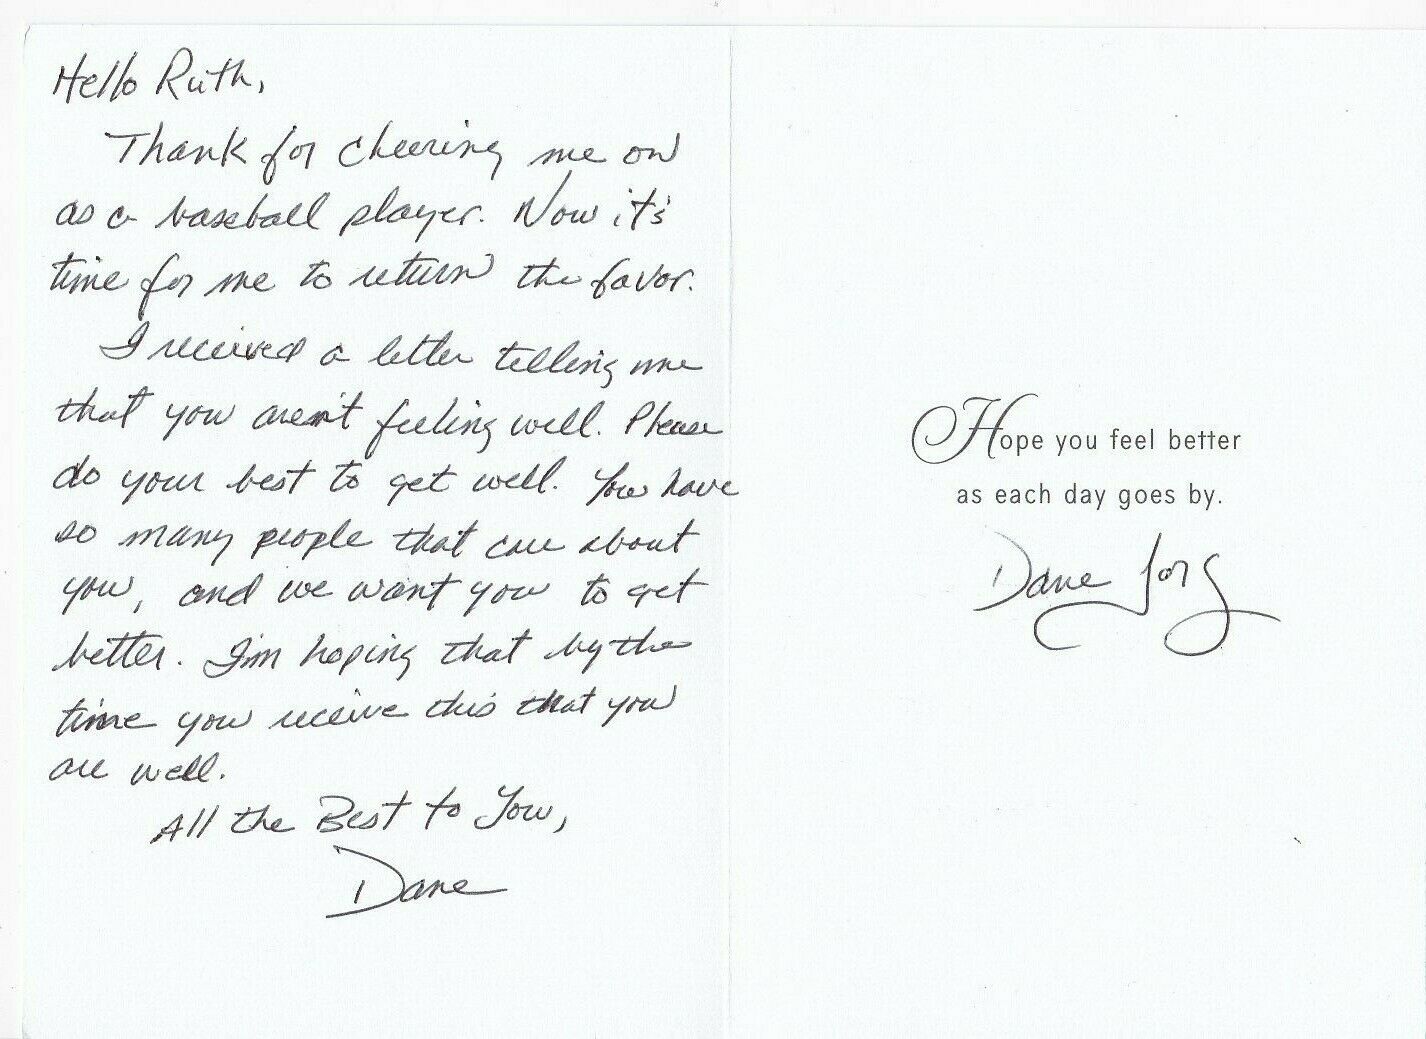 Hello Ruth,
Thank for cheering me on
as a baseball player. Now it's
time for me to return the favor.
I received a letter telling me
that you aren't feeling well. Please
do your best to get well. You have
so many people that care about
you, and we want you to get
better. I'm hoping that by the
time you receive this that you
are well.
All the Best to You,
Dane
Hope you feel better
as each day goes by.
Dane Iorg